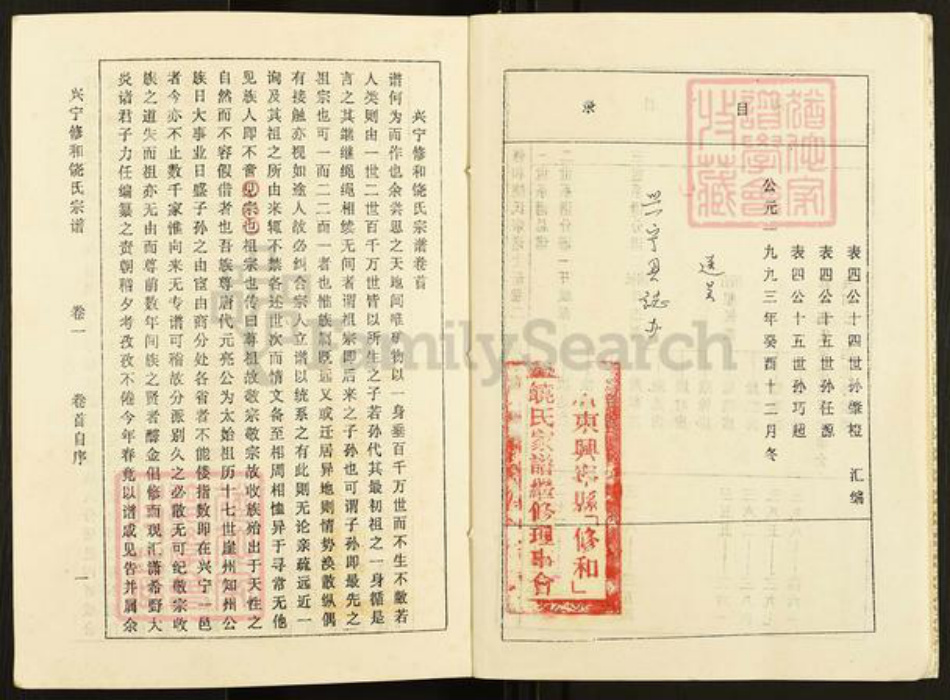 目
录
表四公十四世孙肇橙
表四公十五世孙任源 汇编
表四公十五世孙巧超
公元一九九三年癸酉十二月冬
送呈
兴宁县誌办
广東興寧縣「修和」
饒氏家譜繼修理事會
FamilySearch
兴宁修和饶氏宗谱卷首
谱何为而作也余尝思之天地间唯矿物以一身垂百千万世而不生不敝若
人类则由一世二世百千万世皆以所生之子若孙代其最初祖之一身循是
言之其继继绳绳相续无间者谓祖宗即后来之子孙也可谓子孙即最先之
祖宗也可一而二二而一者也惟族属既远又或迁居异地则情势涣散纵偶
有接触亦视如途人故必纠合宗人立谱以统系之有此则无论亲疏远近一
询及其祖之所由来辄不禁各述世次而情文备至相周相恤异于寻常无他
见族人即不啻见宗也祖宗也传曰尊祖故敬宗敬宗故收族殆出于天性之
自然而不容假借者也吾族尊唐代元亮公为太始祖历十七世崖州知州公
族日大事业日盛子孙之由宦由商分处各省者不能偻指数即在兴宁一邑
者今亦不止数千家惟向来无专谱可稽故分派别久之必散无可纪敬宗收
族之道失而祖亦无由而尊前数年间族之贤者醵金倡修而观汇潇希野人
炎诸君子力任编纂之责朝稽夕考孜孜不倦今年春竟以谱成见告并属余
兴宁修和饶氏宗谱 卷一 卷首自序 一